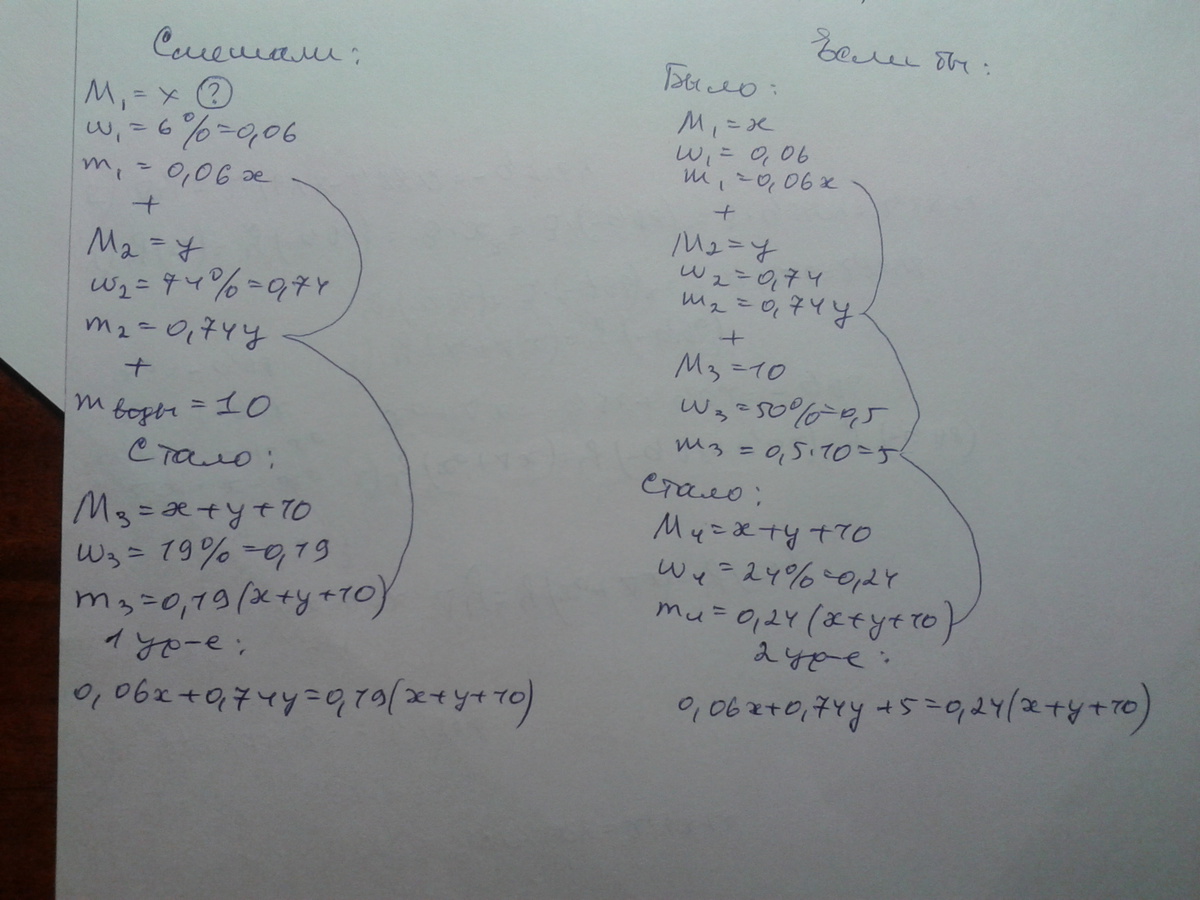 Смешали:
M₁ = x ?
w₁ = 6% = 0,06
m₁ = 0,06x
+
M₂ = y
w₂ = 74% = 0,74
m₂ = 0,74y
+
m воды = 10
Стало:
M₃ = x+y+10
w₃ = 19% = 0,19
m₃ = 0,19(x+y+10)
1 ур-е:
0,06x+0,74y=0,19(x+y+10)
Если бы:
Было:
M₁ = x
w₁ = 0,06
m₁ = 0,06x
+
M₂ = y
w₂ = 0,74
m₂ = 0,74y
+
M₃ = 10
w₃ = 50% = 0,5
m₃ = 0,5·10 = 5
Стало:
M₄ = x+y+10
w₄ = 24% = 0,24
m₄ = 0,24(x+y+10)
2 ур-е:
0,06x+0,74y+5=0,24(x+y+10)